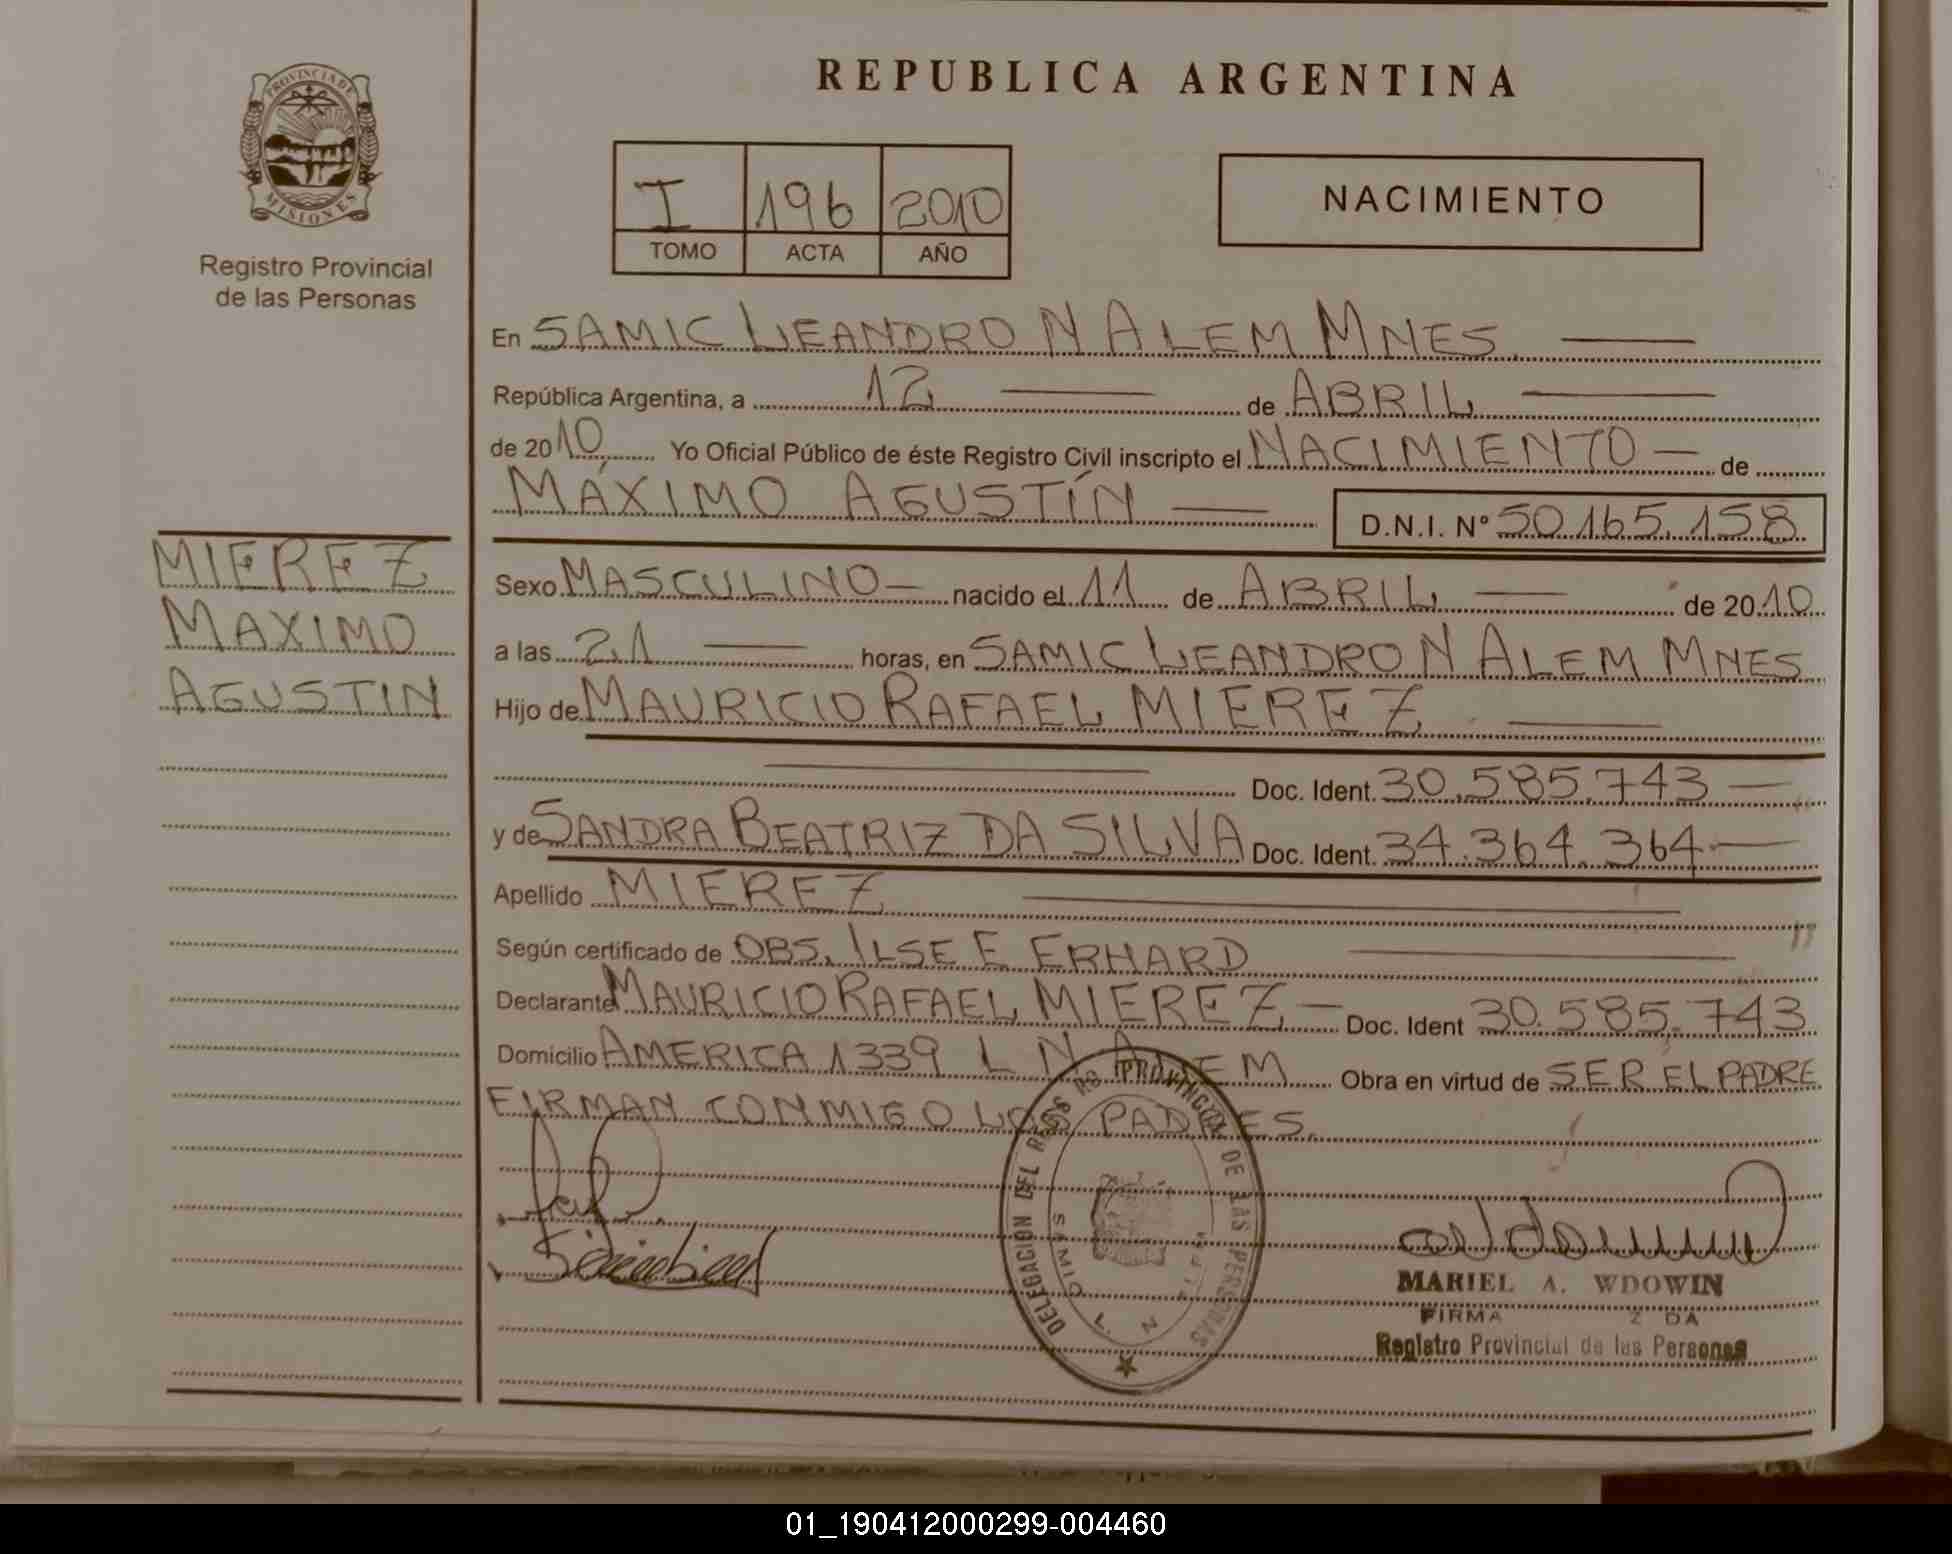 REPUBLICA ARGENTINA
PROVINCIA DE MISIONES
Registro Provincial
de las Personas
I 196 2010
TOMO ACTA AÑO
NACIMIENTO
En SAMIC LEANDRO N ALEM MNES.
República Argentina, a 12 de ABRIL
de 2010 Yo Oficial Público de éste Registro Civil inscripto el NACIMIENTO de
MÁXIMO AGUSTÍN D.N.I. N° 50.165.158
MIEREZ
MAXIMO
AGUSTIN
Sexo MASCULINO nacido el 11 de ABRIL de 2010
a las 21 horas, en SAMIC LEANDRO N ALEM MNES
Hijo de MAURICIO RAFAEL MIEREZ
Doc. Ident. 30.585.743
y de SANDRA BEATRIZ DA SILVA Doc. Ident. 34.364.364
Apellido MIEREZ
Según certificado de OBS. ILSE E ERHARD
Declarante MAURICIO RAFAEL MIEREZ Doc. Ident 30.585.743
Domicilio AMERICA 1339 L N ALEM Obra en virtud de SER EL PADRE
FIRMAN CONMIGO LOS PADRES.
DELEGACION DEL REGISTRO PROVINCIAL DE LAS PERSONAS
SAMIC L. N. ALEM
MARIEL A. WDOWIN
FIRMA
Registro Provincial de las Personas
01_190412000299-004460